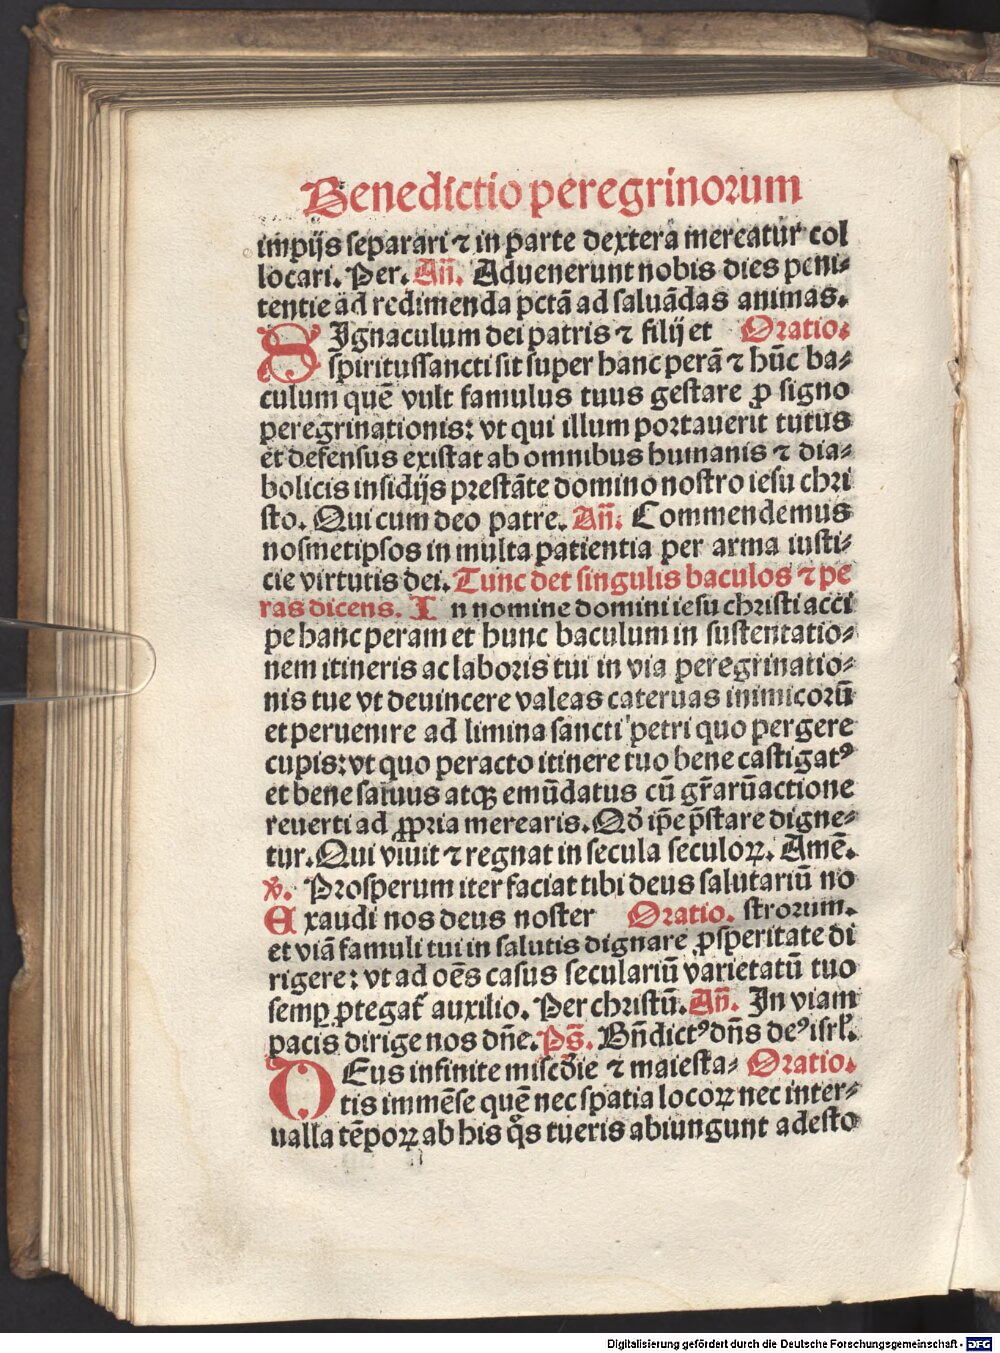 Benedictio peregrinorum
impijs separari ⁊ in parte dextera mereatur col
locari. Per. An̄. Aduenerunt nobis dies peni-
tentie ad redimenda pctā ad saluādas animas.
SIgnaculum dei patris ⁊ filij et Oratio.
spiritussancti sit super hanc perā ⁊ hūc ba-
culum quē vult famulus tuus gestare ꝓ signo
peregrinationis: vt qui illum portauerit tutus
et defensus existat ab omnibus humanis ⁊ dia-
bolicis insidijs prestāte domino nostro iesu chri
sto. Qui cum deo patre. An̄. Commendemus
nosmetipsos in multa patientia per arma iusti-
cie virtutis dei. Tunc det singulis baculos ⁊ pe
ras dicens. In nomine domini iesu christi acci
pe hanc peram et hunc baculum in sustentatio-
nem itineris ac laboris tui in via peregrinatio-
nis tue vt deuincere valeas cateruas inimicorū
et peruenire ad limina sancti petri quo pergere
cupis: vt quo peracto itinere tuo bene castigatꝰ
et bene saluus atqꝫ emūdatus cū gr̄arū actione
reuerti ad ꝓpria merearis. Qd̓ ip̄e p̄stare digne-
tur. Qui viuit ⁊ regnat in secula seculoꝝ. Amē.
℣. Prosperum iter faciat tibi deus salutariū no
Exaudi nos deus noster Oratio. strorum.
et viā famuli tui in salutis dignare ꝓsperitate di
rigere: vt ad oēs casus seculariū varietatū tuo
semꝑ ꝓtegat᷑ auxilio. Per christū. An̄. In viam
pacis dirige nos dn̄e. Ps̄. Bn̄dictꝰ dn̄s deꝰ isrl̓.
DEus infinite misc̓die ⁊ maiesta- Oratio.
tis immēse quē nec spatia locoꝝ nec inter-
ualla tēpoꝝ ab his q̄s tueris abiungunt adesto
Digitalisierung gefördert durch die Deutsche Forschungsgemeinschaft - DFG